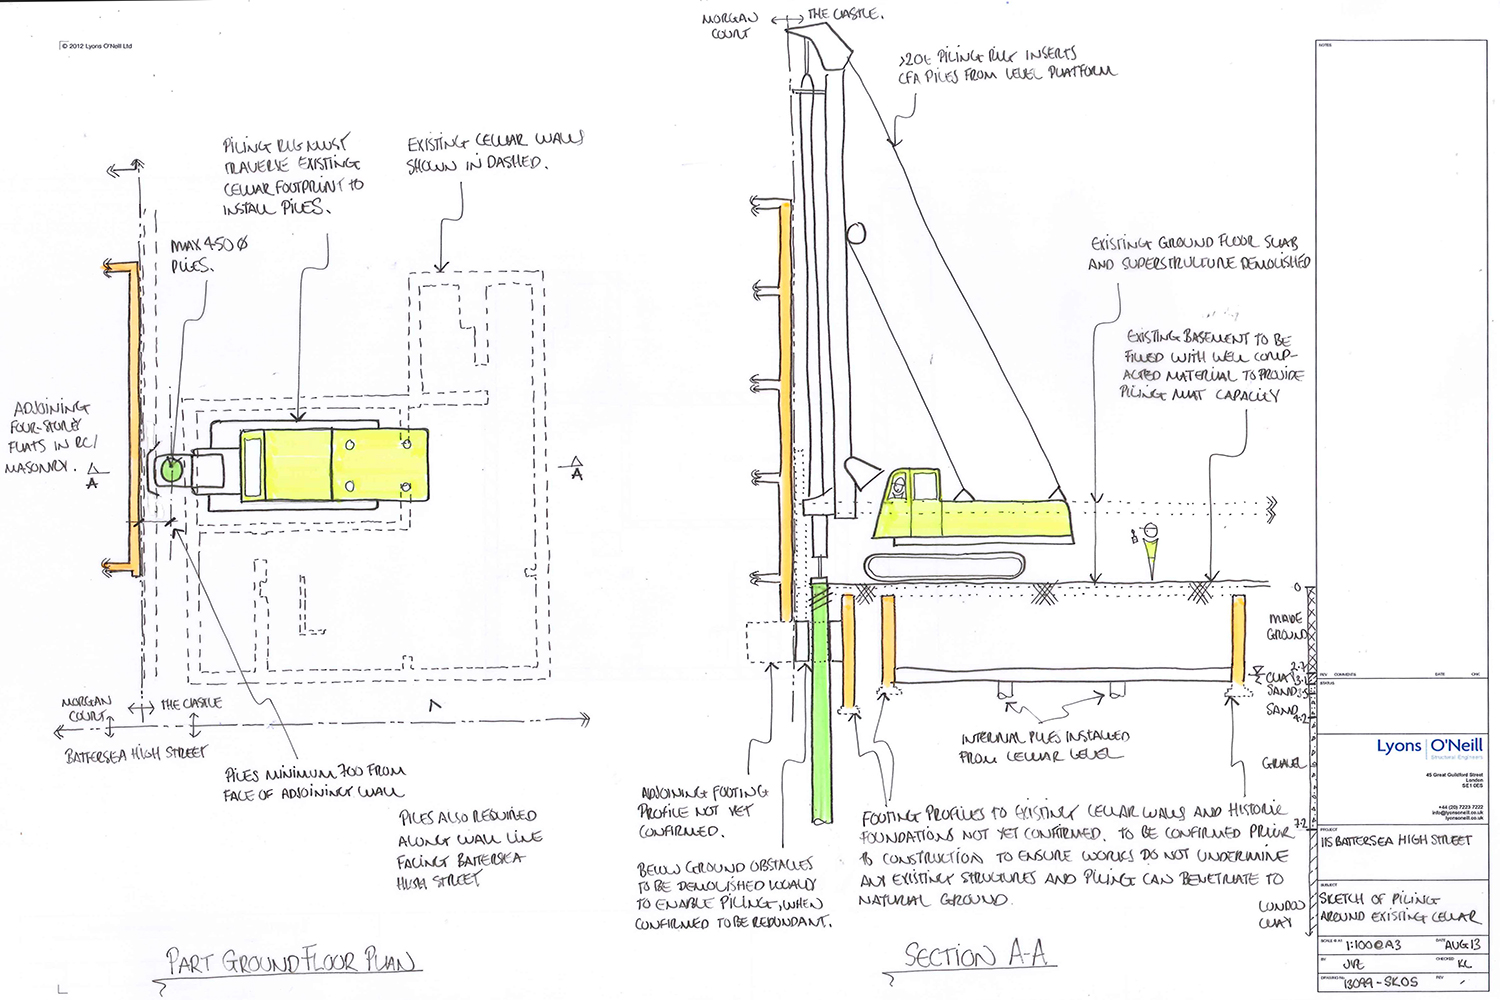 © 2012 Lyons O'Neill Ltd
PILING RIG MUST
TRAVERSE EXISTING
CELLAR FOOTPRINT TO
INSTALL PILES.
EXISTING CELLAR WALLS
SHOWN IN DASHED.
MAX 450 Ø
PILES.
ADJOINING
FOUR-STOREY
FLATS IN RC/
MASONRY.
A
A
MORGAN
COURT
THE CASTLE
BATTERSEA HIGH STREET
PILES MINIMUM 700 FROM
FACE OF ADJOINING WALL
PILES ALSO REQUIRED
ALONG WALL LINE
FACING BATTERSEA
HIGH STREET
PART GROUND FLOOR PLAN
MORGAN
COURT
THE CASTLE.
>20t PILING RIG INSERTS
CFA PILES FROM LEVEL PLATFORM
EXISTING GROUND FLOOR SLAB
AND SUPERSTRUCTURE DEMOLISHED
EXISTING BASEMENT TO BE
FILLED WITH WELL COMP-
ACTED MATERIAL TO PROVIDE
PILING MAT CAPACITY
0
MADE
GROUND
2.7
CLAY 3.1
SAND 3.5
SAND 4.2
GRAVEL
7.2
LONDON
CLAY
INTERNAL PILES INSTALLED
FROM CELLAR LEVEL
ADJOINING FOOTING
PROFILE NOT YET
CONFIRMED.
BELOW GROUND OBSTACLES
TO BE DEMOLISHED LOCALLY
TO ENABLE PILING, WHEN
CONFIRMED TO BE REDUNDANT.
FOOTING PROFILES TO EXISTING CELLAR WALLS AND HISTORIC
FOUNDATIONS NOT YET CONFIRMED. TO BE CONFIRMED PRIOR
TO CONSTRUCTION TO ENSURE WORKS DO NOT UNDERMINE
ANY EXISTING STRUCTURES AND PILING CAN PENETRATE TO
NATURAL GROUND.
SECTION A-A
NOTES
REV COMMENTS DATE CHK
STATUS
Lyons O'Neill
Structural Engineers
45 Great Guildford Street
London
SE1 0ES
+44 (20) 7223 7222
info@lyonsoneill.co.uk
lyonsoneill.co.uk
PROJECT
115 BATTERSEA HIGH STREET
SUBJECT
SKETCH OF PILING
AROUND EXISTING CELLAR
SCALE @ A3 1:100@A3 DATE AUG 13
BY CHECKED KL
DRAWING No 13099-SK05 REV -